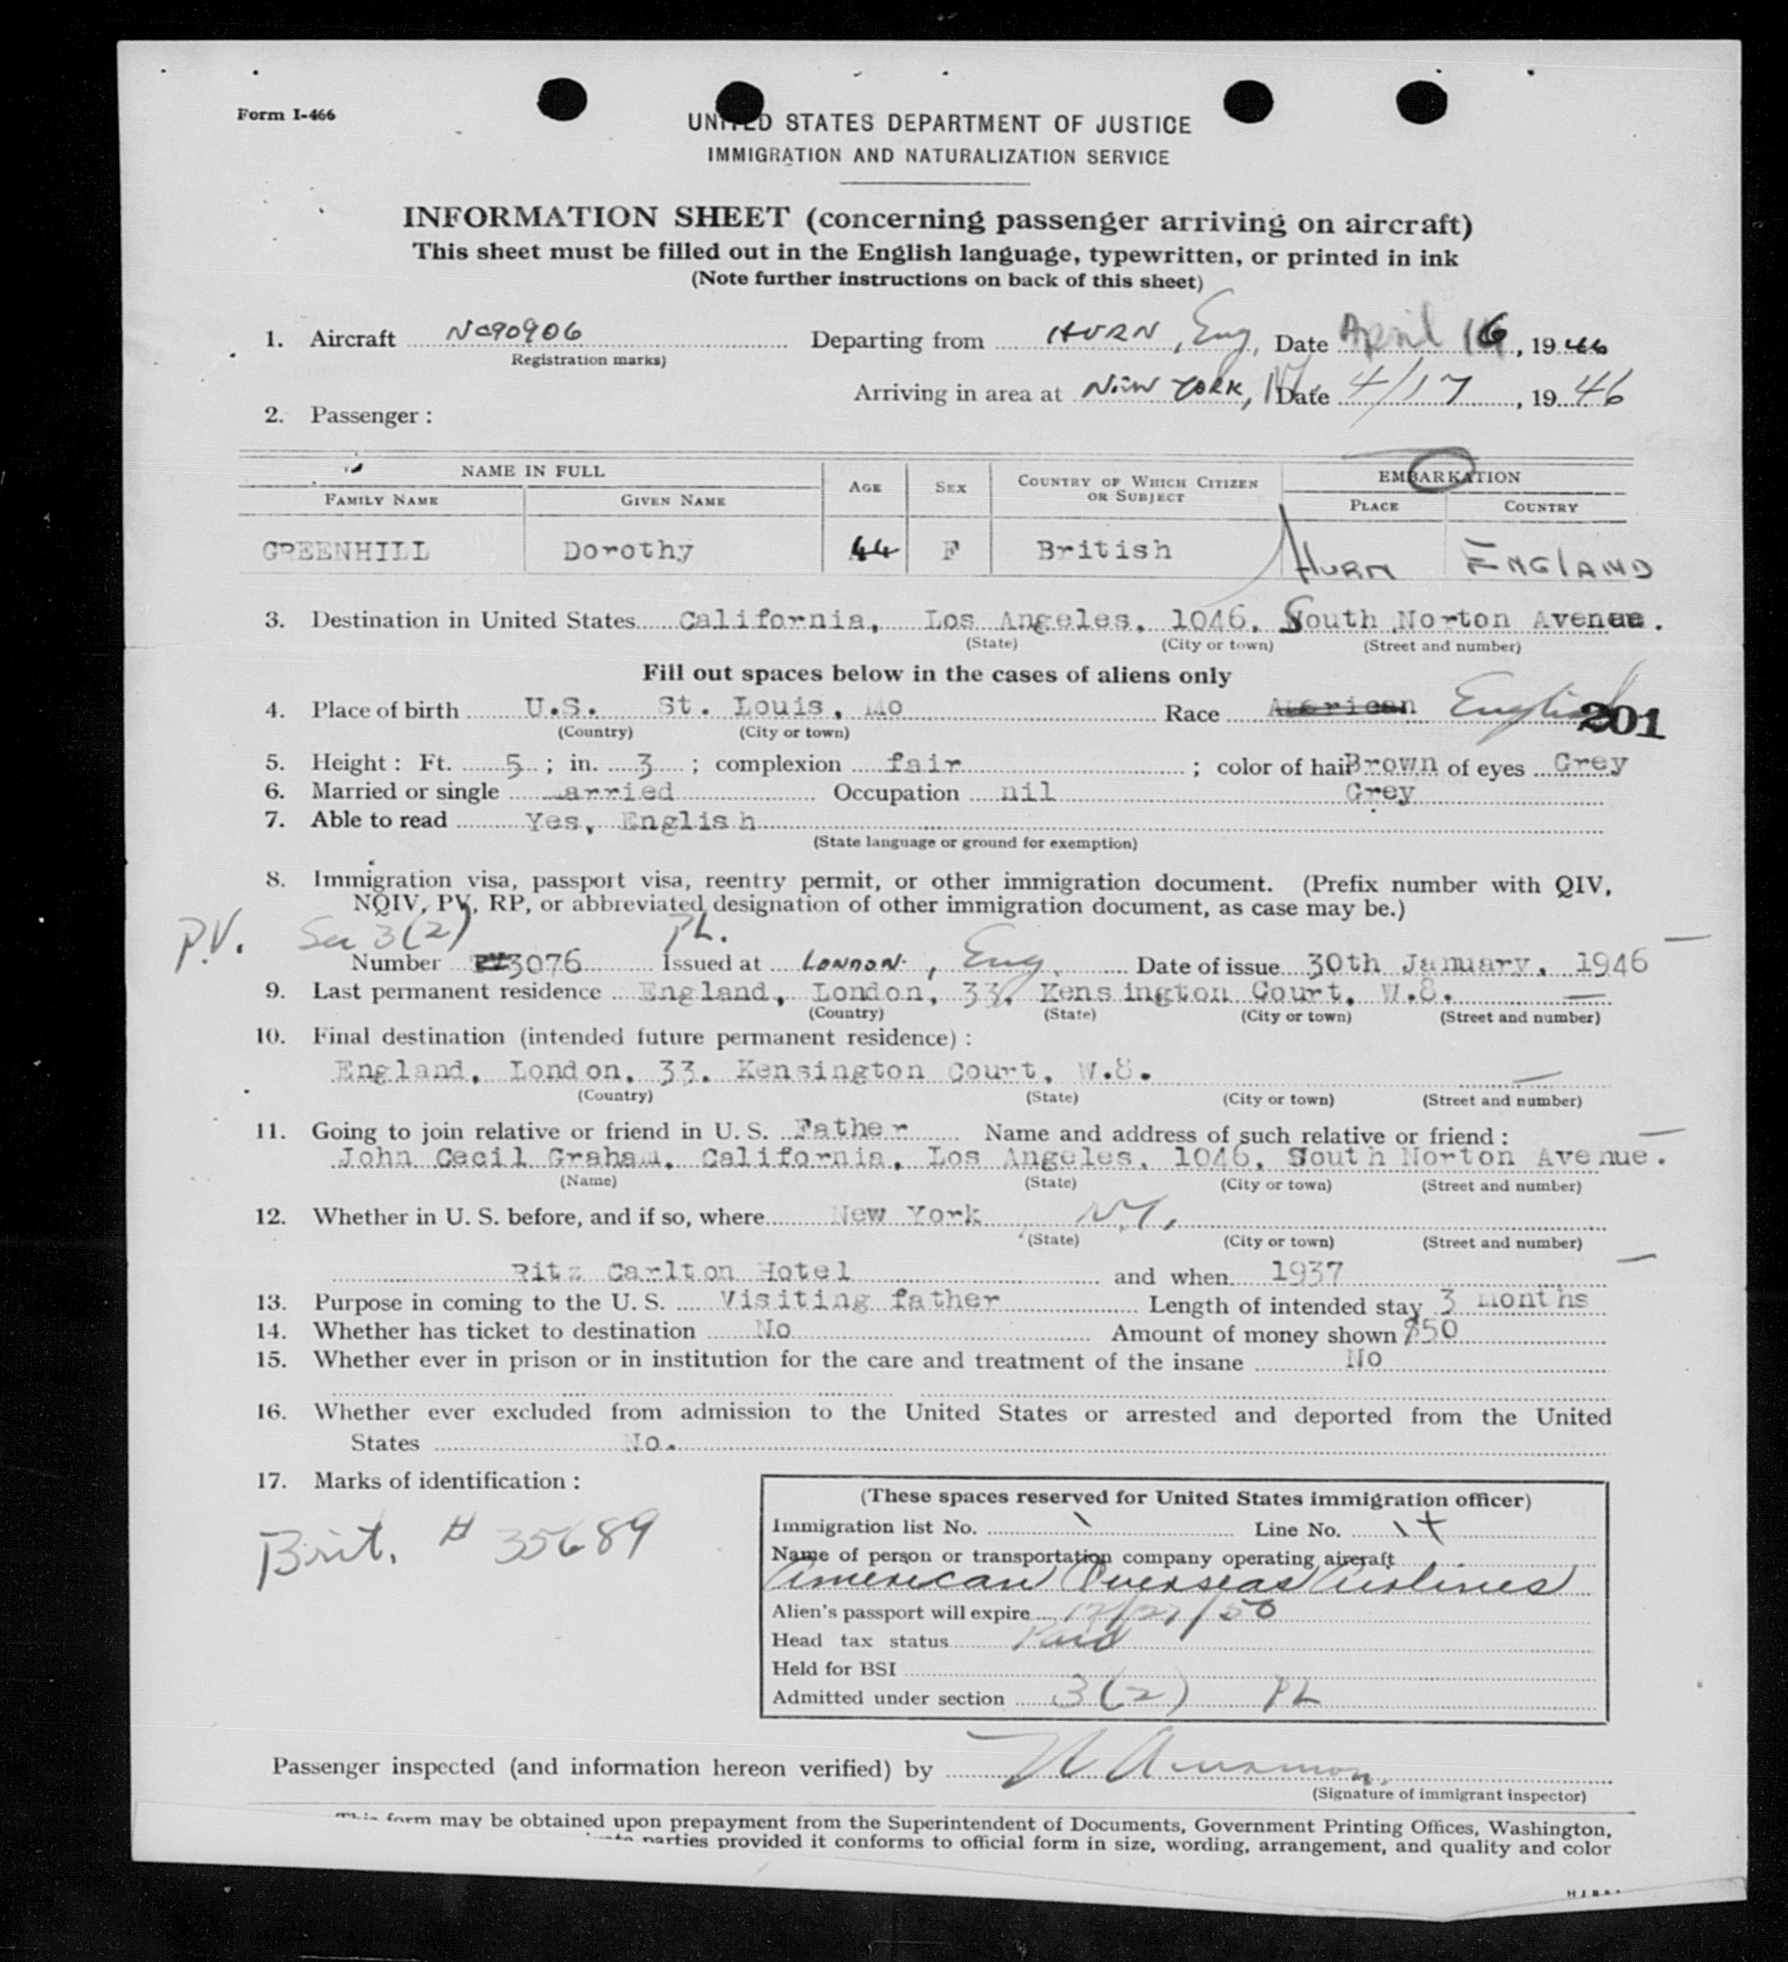 Form I-466
UNITED STATES DEPARTMENT OF JUSTICE
IMMIGRATION AND NATURALIZATION SERVICE
INFORMATION SHEET (concerning passenger arriving on aircraft)
This sheet must be filled out in the English language, typewritten, or printed in ink
(Note further instructions on back of this sheet)
1. Aircraft NC90906 Departing from HURN, Eng, Date April 16, 1946
(Registration marks)
Arriving in area at NEW YORK, NY Date 4/17, 1946
2. Passenger :
NAME IN FULL AGE SEX COUNTRY OF WHICH CITIZEN OR SUBJECT EMBARKATION
FAMILY NAME GIVEN NAME PLACE COUNTRY
GREENHILL Dorothy 44 F British HURN ENGLAND
3. Destination in United States California, Los Angeles, 1046, South Norton Avenue.
(State) (City or town) (Street and number)
Fill out spaces below in the cases of aliens only
4. Place of birth U.S. St. Louis, Mo Race American English 201
(Country) (City or town)
5. Height : Ft. 5 ; in. 3 ; complexion fair ; color of hair Brown of eyes Grey
6. Married or single Married Occupation nil Grey
7. Able to read Yes, English
(State language or ground for exemption)
8. Immigration visa, passport visa, reentry permit, or other immigration document. (Prefix number with QIV,
NQIV, PV, RP, or abbreviated designation of other immigration document, as case may be.)
P.V. Sec 3(2) PL.
Number PV3076 Issued at LONDON, Eng. Date of issue 30th January, 1946
9. Last permanent residence England, London, 33, Kensington Court, W.8.
(Country) (State) (City or town) (Street and number)
10. Final destination (intended future permanent residence) :
England, London, 33, Kensington Court, W.8.
(Country) (State) (City or town) (Street and number)
11. Going to join relative or friend in U. S. Father Name and address of such relative or friend :
John Cecil Graham, California, Los Angeles, 1046, South Norton Avenue.
(Name) (State) (City or town) (Street and number)
12. Whether in U. S. before, and if so, where New York N.Y.
(State) (City or town) (Street and number)
Ritz Carlton Hotel and when 1937
13. Purpose in coming to the U. S. Visiting father Length of intended stay 3 Months
14. Whether has ticket to destination No Amount of money shown $50
15. Whether ever in prison or in institution for the care and treatment of the insane No
16. Whether ever excluded from admission to the United States or arrested and deported from the United
States No.
17. Marks of identification :
Brit. # 35689
(These spaces reserved for United States immigration officer)
Immigration list No. 1 Line No. 1
Name of person or transportation company operating aircraft
American Overseas Airlines
Alien's passport will expire 12/27/50
Head tax status Paid
Held for BSI
Admitted under section 3(2) PL
Passenger inspected (and information hereon verified) by
(Signature of immigrant inspector)
This form may be obtained upon prepayment from the Superintendent of Documents, Government Printing Offices, Washington,
parties provided it conforms to official form in size, wording, arrangement, and quality and color